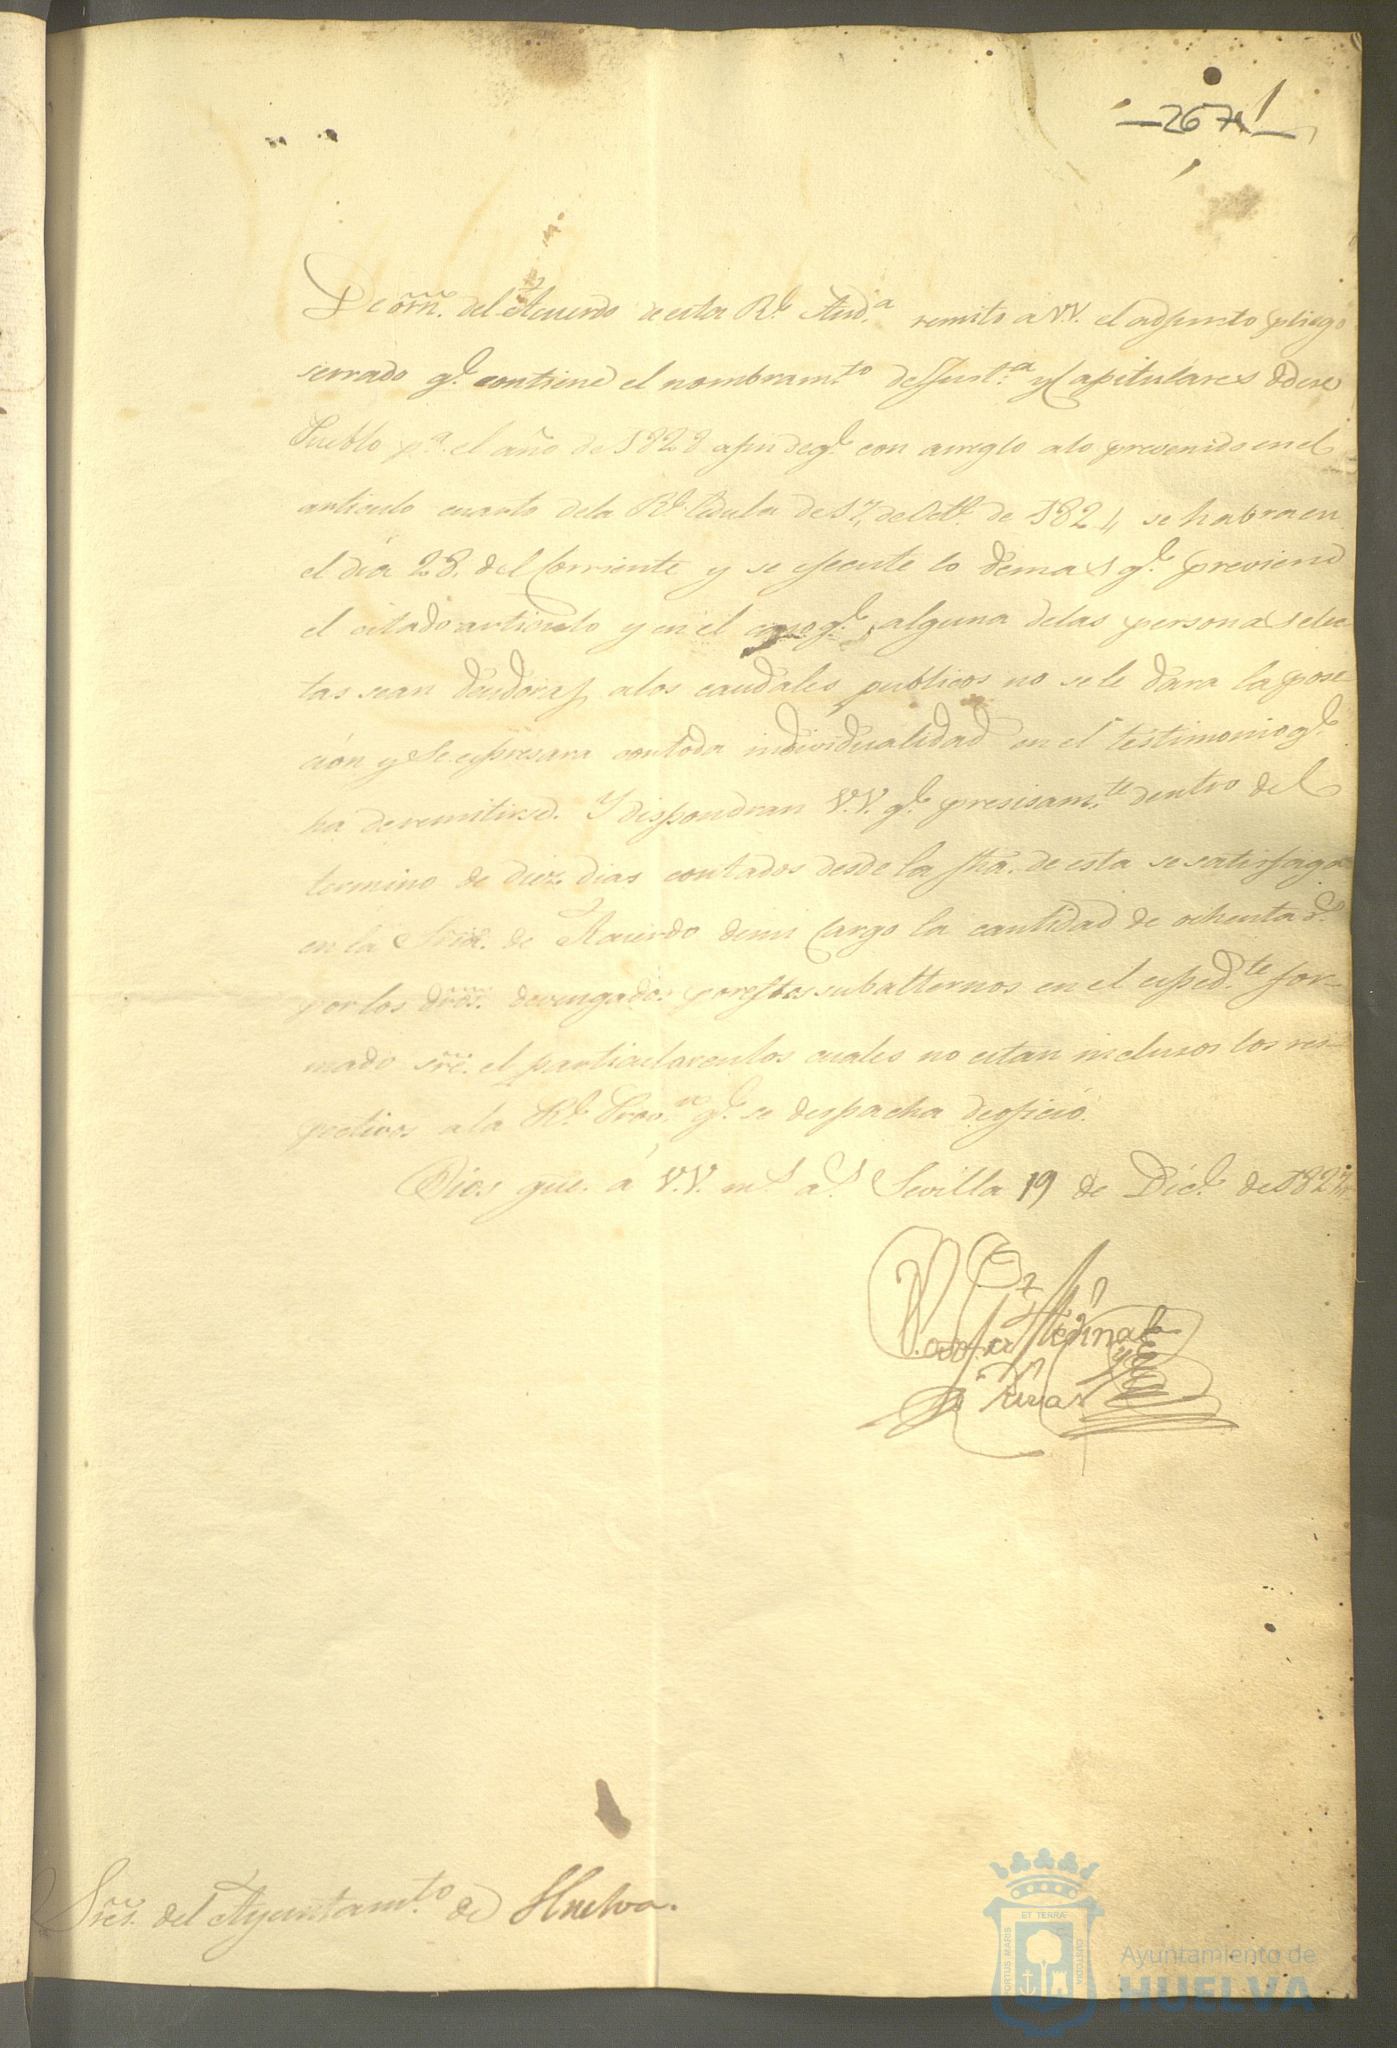 267
De orn. del Acuerdo de esta Rl. Aud.a remito a VV. el adjunto pliego
serrado qe. contiene el nombram.to de Just.a y Capitulares de ese
Pueblo p.a el año de 1828 afin de qe. con arreglo alo prevenido en el
articulo cuarto dela Rl. Cedula de 17, de Oct.e de 1824, se habra en
el dia 28. del Corriente y se ejecute lo demas qe. previene
el citado articulo y en el caso qe. alguna delas personas elec-
tas sean deudoras alos caudales publicos no se le dara la pose-
ción y se expresara contoda individualidad en el testimonio qe.
ha de remitirse. Y dispondran V.V. qe. presisam.te dentro del
termino de diez dias contados desde la fha. de esta se satisfaga
en la Sria. de Acuerdo demi Cargo la cantidad de ochenta r.s
por los dros. devengados por estos subalternos en el esped.te for-
mado sre. el particular enlos cuales no estan inclusos los res-
pectivos a la Rl. Prov.on qe. se despacha de oficio.
Dios gue. á V.V. ms. as. Sevilla 19 de Dice. de 1827
Medina
y Rivas
Sres. del Ayuntam.to de Huelva.
PORTUS MARIS ET TERRAE CUSTODIA
Ayuntamiento de
HUELVA